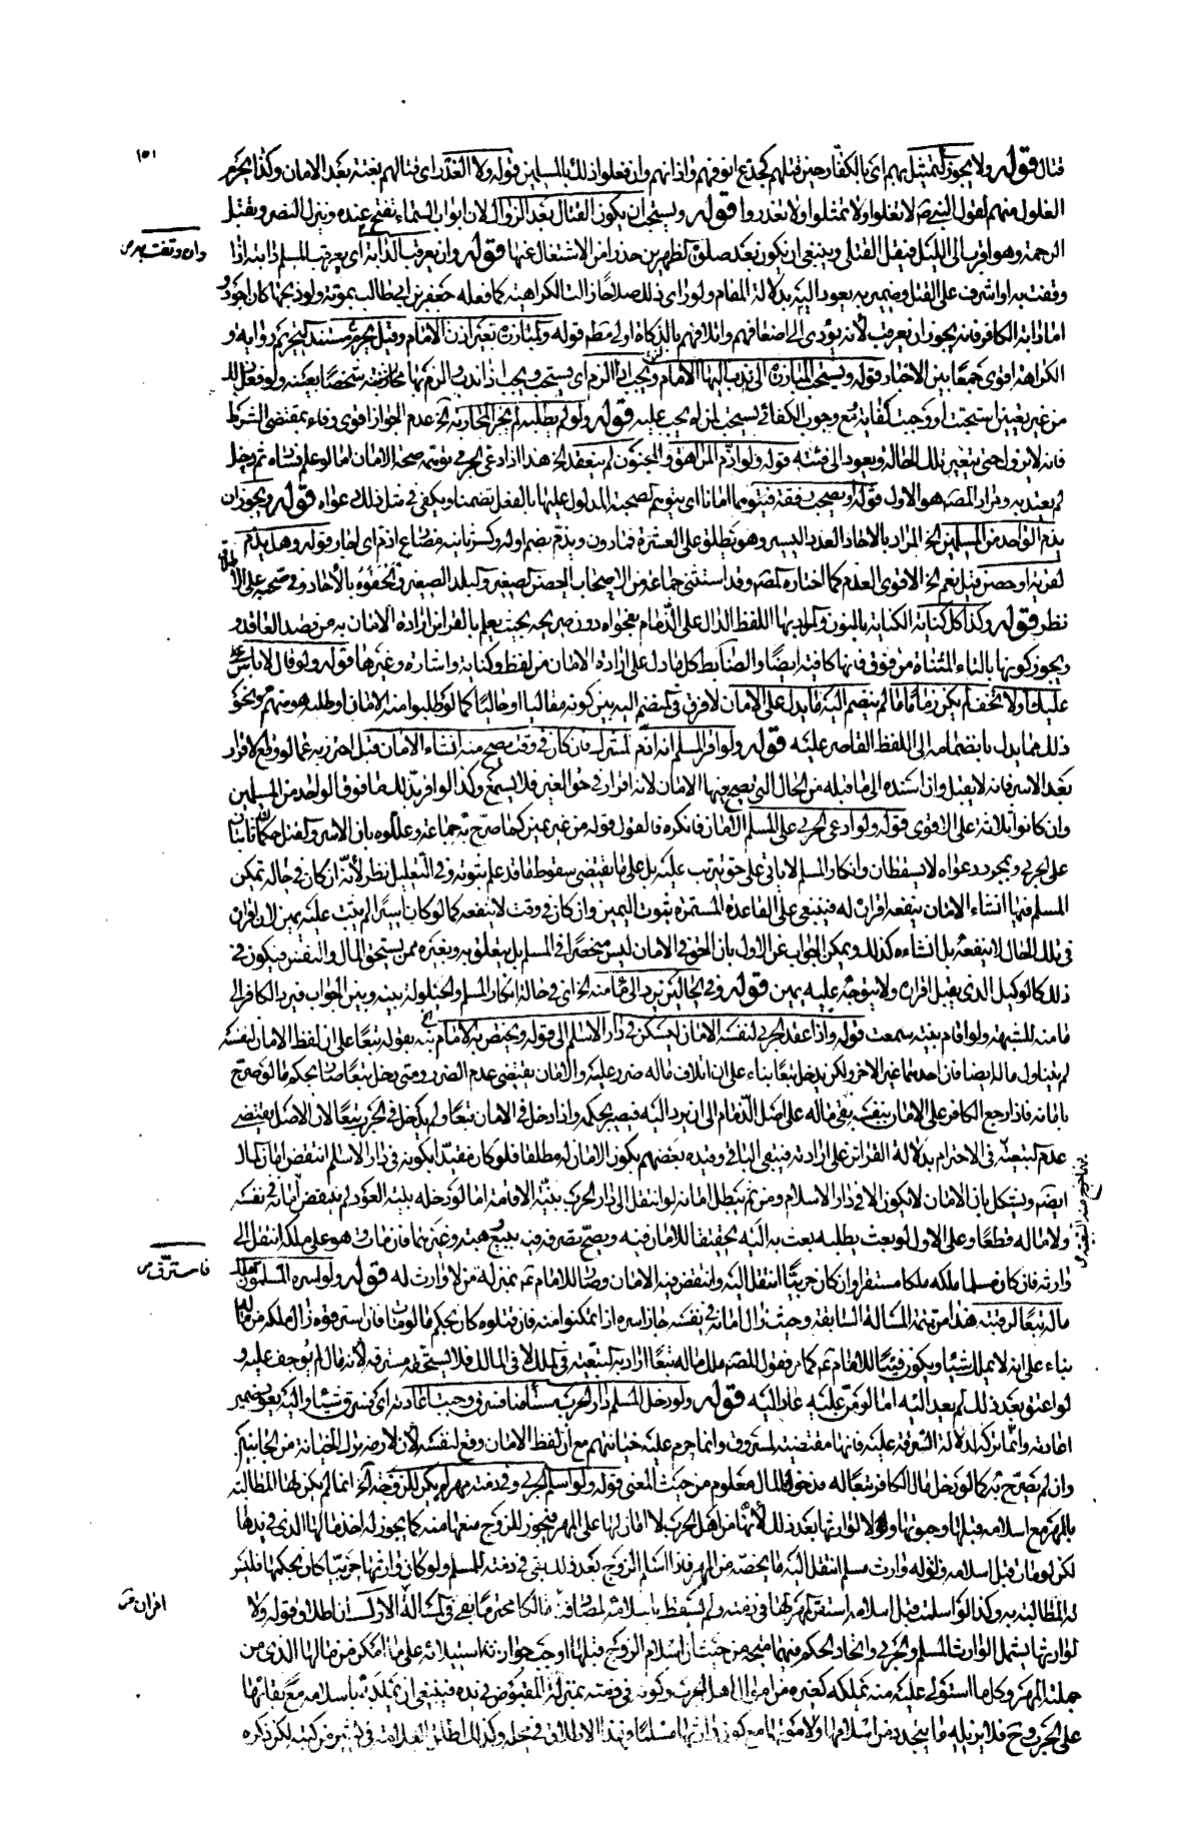 ١٥١
قتال قوله ولا يجوز التمثيل بهم اى بالكفار حين قتلهم كجدع انوفهم واذانهم وان فعلوا ذلك بالمسلمين قوله ولا الغدر اى قتالهم بغتة بعد الامان وكذا يحرم
الغلول منهم لقول النبي ص لا تغلوا ولا تمثلوا ولا تغدروا قوله ويستحب ان يكون القتال بعد الزوال لان ابواب السماء تفتح عنده وينزل النصر ويقبل
الرحمة وهو اقرب الى الليل فيقل القتلى وينبغي ان يكون بعد صلوة الظهرين حذرا من الاشتغال عنها قوله وان يعرقب الدابة اى يعرقب المسلم دابته اذا
وان وقفت به ص
وقفت به او اشرف على القتل وضمير به يعود اليه بدلالة المقام ولو راى ذلك صلاحا زالت الكراهية كما فعله جعفر بن ابي طالب بموتة ولو ذبحها كان اجود و
اما دابة الكافر فانه يجوز ان يعرقب لأنه يؤدى الى اضعافهم واتلافهم بالذكاة اولى مطم قوله والمبارزة بغير اذن الامام وقيل يحرم مستند التحريم رواية و
الكراهة اقوى جمعا بين الاخبار قوله ويستحب المبارزة الى ندب اليها الامام ويجب اذا الزم اى يستحب ويجب اذا ندب والزم بها شخصا بعينه ولو فعل ذلك
من غير تعيين استحبت او وجبت كفاية ومع وجوب الكفائى يستحب لمن لم يجب عليه قوله ولو لم يطلبه لم يجز المحاربة الخ عدم الجواز اقوى وفاء بمقتضى الشرط
فانه لا يزول حتى يتغير تلك الحالة ويعود الى فئته قوله ولو اذم المراهق والمجنون لم ينعقد الخ هذا اذا ادعى الحربي توهمه صحة الامان اما لو علم فساده ثم دخل
لم يعتد به ومراد المصنف هو الاول قوله او يصحب رفقة فيتوهمها امانا اى يتوهم الصحبة المدلول عليها بالفعل تضمنا ويكفى في مثل ذلك دعواه قوله ويجوز ان
يذم الواحد من المسلمين الخ المراد بالاحاد العدد اليسير وهو يطلق على العشرة فما دون ويذم بضم اوله وكسر ثانيه مضارع اذم اى اجار قوله وهل يذم
لقرية او حصن قيل نعم الخ الاقوى العدم كما اختاره المصنف وقد استثنى جماعة من الاصحاب الحصن الصغير والبلد الصغير فالحقوه بالاحاد وفي صحته على الاطلاق
نظر قوله وكذا كل كناية الكناية بالنون والمراد بها اللفظ الدال على الذمام بفحواه دون صريحه بحيث يعلم بالقرائن ارادة الامان به من قصد العاقد و
ويجوز كونها بالتاء المثناة من فوق فانها كافية ايضا والضابط كل ما دل على ارادة الامان من لفظ وكتابة واشارة وغيرها قوله ولو قال لا باس
عليك او لا تخف لم يكن ذماما ما لم ينضم اليه ما يدل على الامان لا فرق في المنضم اليه بين كونه مقاليا او حاليا كما لو طلبوا منه الامان او طلبه هو منهم ونحو
ذلك مما يدل بانضمامه الى اللفظ القاصر عليه قوله ولو اقر المسلم انه اذم لمشرك فان كان في وقت يصح منه انشاء الامان قبل احترز به عما لو وقع الاقرار
بعد الاسر فانه لا يقبل وان اسنده الى ما قبله من الحال التي يصح فيها الامان لانه اقرار في حق الغير فلا يسمع وكذا لو اقر بذلك ما فوق الواحد من المسلمين
وان كانوا ثلاثة على الاقوى قوله ولو ادعى الحربي على المسلم الامان فانكره فالقول قوله من غير يمين كما صرح به جماعة وعللوه بان الاسر والقتل حكمان ثابتان
على الحربي وبمجرد دعواه لا يسقطان وانكار المسلم لا ياتى على حق يترتب عليه بل على ما يقتضى سقوط ما قد علم ثبوته وفي التعليل نظر لأنه ان كان في حالة تمكن
المسلم فيها انشاء الامان ينفعه اقراره له فينبغي على القاعدة المستمرة ثبوت اليمين وان كان في وقت لا ينفعه كما لو كان اسيرا لم يثبت عليه يمين لان اقراره
في تلك الحال لا ينفعه بل انشاءه كذلك ويمكن الجواب عن الاول بان الحق في الامان ليس منحصرا في المسلم بل يتعلق به وبغيره ممن يستحق المال والنفس فيكون في
ذلك كالوكيل الذى يقبل اقراره ولا يتوجه عليه يمين قوله وفي الحالتين يرد الى مأمنه الخ اى في حالة انكار المسلم والحيلولة بينه وبين الجواب فيرد الكافر الى
مامنه للشبهة ولو اقام بينة سمعت قوله واذا عقد الحربي لنفسه الامان ليسكن في دار الاسلم الى قوله ويختص به الامام نبه بقوله تبعا على ان لفظ الامان لنفسه
لم يتناول ماله ايضا فان احدهما غير الاخر ولكن يدخل تبعا بناء على ان اتلاف ماله ضرر عليه والامان يقتضى عدم الضرر ومتى دخل تبعا صار بحكم ما لو صرح
بامانه فاذا رجع الكافر على الامان بنفسه بقى ماله على اصل الذمام الى ان يرد اليه فيصير بحكمه واذا دخل في الامان تبعا ولم يدخل في الحرز تبعا لان الاصل يقتضى
عدم التبعية في الاحترام بدلالة القرائن على ارادته فيبقى الباقى وقيده بعضهم بكون الامان له مطلقا فلو كان مقيدا بكونه في دار الاسلم انتقض امان المال
ايضا ويشكل بان الامان لا يكون الا في دار الاسلام ومن ثم يبطل امانه لو انتقل الى دار الحرب بنية الاقامة اما لو دخله بنية العود لم ينتقض امانه في نفسه
ولا ماله قطعا وعلى الاول لو بعث يطلبه بعث به اليه تحقيقا للامان فيه ويصح تصرفه فيه ببيع وهبة وغيرهما فان مات وهو على ملكه انتقل الى
وارثه فان كان مسلما ملكه ملكا مستقرا وان كان حربيا انتقل اليه وانتقض فيه الامان وصار للامام ثم بمنزلة من لا وارث له قوله ولو اسره المسلمون فاسترق ملك
فاسترق ص
ماله تبعا لرقبته هذا من تتمة المسالة السابقة وحيث زال امانه في نفسه جاز اسره اذا تمكنوا منه فان قتلوه كان بحكم ما لو مات فان استرقوه زال ملكه من ماله
بناء على انه لا يملك شيئا ويكون فيئا للامام ثم كما مر فقول المصنف ملك ماله تبعا اراد به التبعية في الملك لا في المالك فلا يستحقه مسترقه لأنه مال لم يوجف عليه و
لو اعتق بعد ذلك لم يعد اليه اما لو من عليه عاد اليه قوله ولو دخل المسلم دار الحرب مستأمنا فسرق وجبت اعادته اى فسرق شيئا واليه يعود ضمير
اعادته وانما تركه لدلالة السرقة عليه فانها مقتضية لمسروق وانما حرم عليه خيانتهم مع ان لفظ الامان وقع لنفسه لأن لازمه ترك الخيانة من الجانبين
وان لم يصرح به كما لو دخل مال الكافر تبعا له فدخول المال معلوم من حيث المعنى قوله ولو اسلم الحربي وفي ذمته مهر لم يكن للزوجة الخ انما لم يكن لها المطالبة
بالمهر مع اسلامه قبلها وحقوقها ولا لوارثها بعد ذلك لأنها من اهل الحرب لا امان لها على المهر فيجوز للزوج منعها منه كما يجوز له اخذ مالها الذى في يدها
لكن لو مات قبل اسلامه ولو له وارث مسلم انتقل اليه ما يخصه من المهر فاذا اسلم الزوج بعد ذلك بقى في ذمته للمسلم ولو كان وارثها حربيا كان بحكمها فليس
له المطالبة به وكذا لو اسلمت قبل اسلامه استقر المهر لها في ذمته ولم يسقط باسلامه
اقران ص
لوارثها يشمل الوارث المسلم والحربي واتحاد الحكم فيهما متجه من حيث ان اسلام الزوج قبلها اوجب جواز استيلائه على ما امكن من مالها الذى من
جملته المهر وكل ما استولى عليه منه تملكه كغيره من اموال اهل الحرب وكونه في ذمته بمنزلة المقبوض في يده فينبغي ان يملكه باسلامه مع بقائها
على الحرب وح فلا يزيله ما يتجدد من اسلامها ولا موتها مع كون وارثها مسلما وبهذا الاطلاق